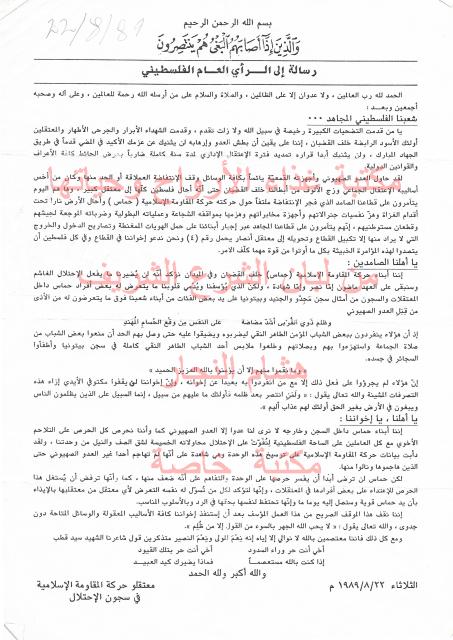 22/8/89
بسم الله الرحمن الرحيم
وَالَّذِينَ إِذَا أَصَابَهُمُ الْبَغْيُ هُمْ يَنتَصِرُونَ
رسالة إلى الرأي العام الفلسطيني
الحمد لله رب العالمين، ولا عدوان إلا على الظالمين، والصلاة والسلام على من أرسله الله رحمة للعالمين، وعلى آله وصحبه
أجمعين وبعد:
شعبنا الفلسطيني المجاهد ...
يا من قدمت التضحيات الكبيرة رخيصة في سبيل الله ولا زلت تقدم، وقدمت الشهداء الأبرار والجرحى الأطهار والمعتقلين
الأسود الرابضة خلف القضبان، إننا على يقين أن بطش العدو وإرهابه لن يثنيك عن عزمك الأكيد في المضي قدماً في طريق
الجهاد المبارك، ولن يثنيك أبداً قراره تمديد فترة الإعتقال الإداري لمدة سنة كاملة ضارباً بعرض الحائط كافة الأعراف
والقوانين الدولية.
لقد حاول العدو الصهيوني وأجهزته القمعية بكافة الوسائل وقف الإنتفاضة العملاقة أو الحد منها وكان من أخس
أساليبه الإعتقال الجماعي وزج الألوف من أبطالنا خلف القضبان حتى
يتآمرون على قطاعنا الصامد الذي فجر الإنتفاضة ملتفاً حول حركته حركة المقاومة الإسلامية (حماس)
أقدام الغزاة
وقطعان مستوطنيهم، إنهم يتآمرون على قطاعنا المجاهد عبر إجبار أبنائنا على حمل الهويات الممغنطة وتصاريح الدخول والخروج
التي لا يراد منها إلا تكبيل القطاع وتحويله إلى معتقل أنصار يحمل رقم (٤) ونحن ندعو إخواننا في القطاع وفي كل فلسطين أن
يتصدوا لهذه المؤامرة الخبيثة بكل ما أوتوا من قوة مهما كلف الأمر.
يا أهلنا الصامدين:
إننا أبناء حركة المقاومة الإسلامية (حماس) خلف القضبان وفي الميدان نؤكد أنه لن يضيرنا ما يفعل الإحتلال الغاشم
وسنبقى على العهد ماضون إما نصر وإما شهادة، ولكن الذي يؤسفنا ويدمي قلوبنا ما يتعرض له بعض أفراد حماس داخل
المعتقلات والسجون من أمثال سجن مجدو والجنيد وبيتونيا على يد بعض الفئات من أبناء شعبنا فوق ما يتعرضون له من الأذى
من قبل العدو الصهيوني
وظلم ذوي القربى أشد مضاضة على النفس من وقع الحسام المهند
إذ أن هؤلاء ينفردون ببعض الشباب المؤمن الطاهر النقي ليضربوه ويضيقوا عليه حتى وصل بهم الحد أن منعوا بعض الشباب من
صلاة الجماعة واستهزءوا بهم وبصلاتهم وخلعوا ملابس أحد الشباب الطاهر النقي كاملة في سجن بيتونيا وأطفأوا
السجائر في جسده.
« وما نقموا منهم إلا أن يؤمنوا بالله العزيز الحميد »
إن هؤلاء لم يجرؤوا على فعل ذلك إلا مع من انفردوا به بعيداً عن إخوانه، وإن إخواننا لن يقفوا مكتوفي الأيدي إزاء هذه
التصرفات المشينة والله تعالى يقول: « ولمن انتصر بعد ظلمه فأولئك ما عليهم من سبيل، إنما السبيل على الذين يظلمون الناس
ويبغون في الأرض بغير الحق أولئك لهم عذاب أليم ».
يا أهلنا، يا إخواننا:
إننا أبناء حماس داخل السجن وخارجه لا نرى لنا عدواً إلا العدو الصهيوني كما وأننا نحرص كل الحرص على التلاحم
الأخوي مع كل العاملين على الساحة الفلسطينية لنفوّت على الإحتلال محاولاته الخسيسة لشق الصف والنيل من وحدتنا، ولقد
دأبت بيانات حركة المقاومة الإسلامية على ترسيخ هذه الوحدة وهي شاهدة على أنها لم تهاجم أحداً غير العدو الصهيوني حتى
الذين هاجموها ونالوا منها.
لكن حماس لن ترضى أبداً أن يفسر حرصها على الوحدة والتفاهم على أنه ضعف منها، كما وأنها ترفض أن يُستغل هذا
الحرص للإعتداء على بعض أفرادها في المعتقلات، وإنها لتؤكد لكل من تسول له نفسه التعرض لأي معتقل من معتقليها بالإيذاء
بأن يد حماس قوية وستصل إليه يوماً ما وإنها تحتفظ لنفسها بحقها في الرد وبالأسلوب المناسب.
إننا نقف هذا الموقف الصريح من هذا العمل المؤسف بعد أن إستنفذ إخواننا كافة الأساليب المعقولة والوسائل المتاحة دون
جدوى، والله تعالى يقول: « لا يحب الله الجهر بالسوء من القول إلا من ظُلِم ».
ومع كل ذلك فإننا معتصمين بالله لا نوالي إلا إياه إنه نعم المولى ونعم النصير متذكرين قول شاعرنا الشهيد سيد قطب
أخي أنت حر وراء السدود أخي أنت حر بتلك القيود
إذا كنت بالله مستعصماً فماذا يضيرك كيد العبيد
والله أكبر ولله الحمد
الثلاثاء ١٩٨٩/٨/٢٢ م
معتقلو حركة المقاومة الإسلامية
في سجون الإحتلال
هشام النجار
مكتبة خاصة